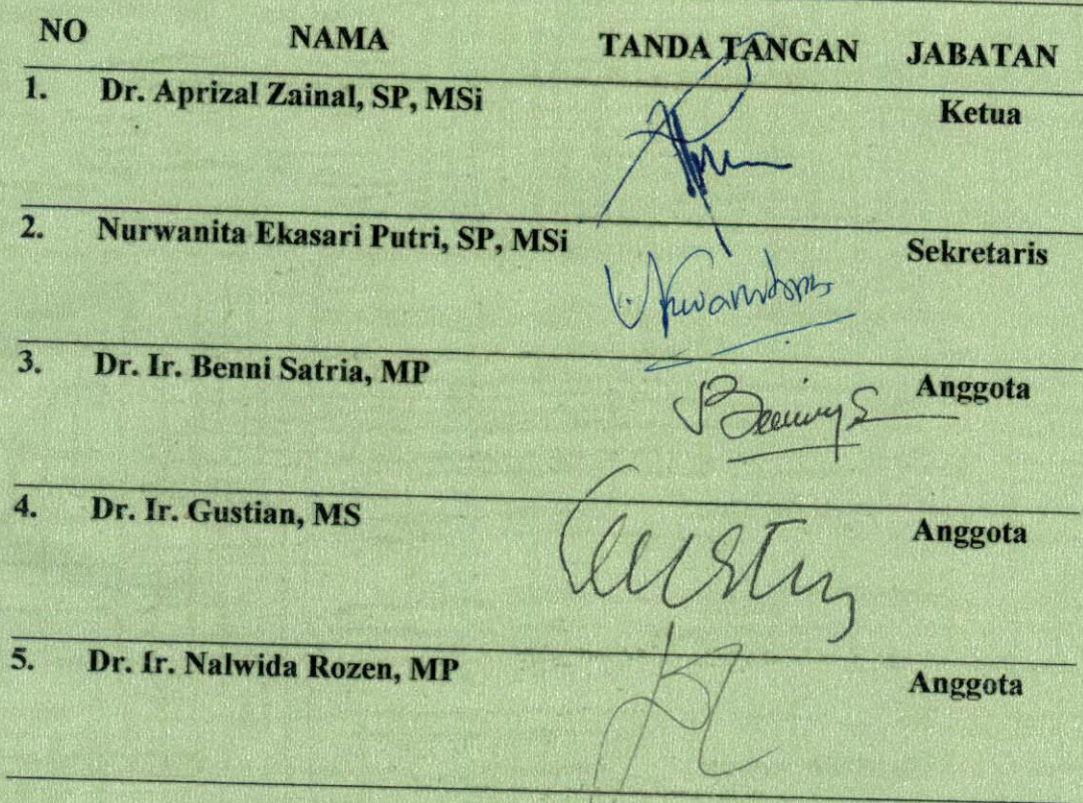 NO NAMA TANDA TANGAN JABATAN
1. Dr. Aprizal Zainal, SP, MSi Ketua
2. Nurwanita Ekasari Putri, SP, MSi Sekretaris
3. Dr. Ir. Benni Satria, MP Anggota
4. Dr. Ir. Gustian, MS Anggota
5. Dr. Ir. Nalwida Rozen, MP Anggota